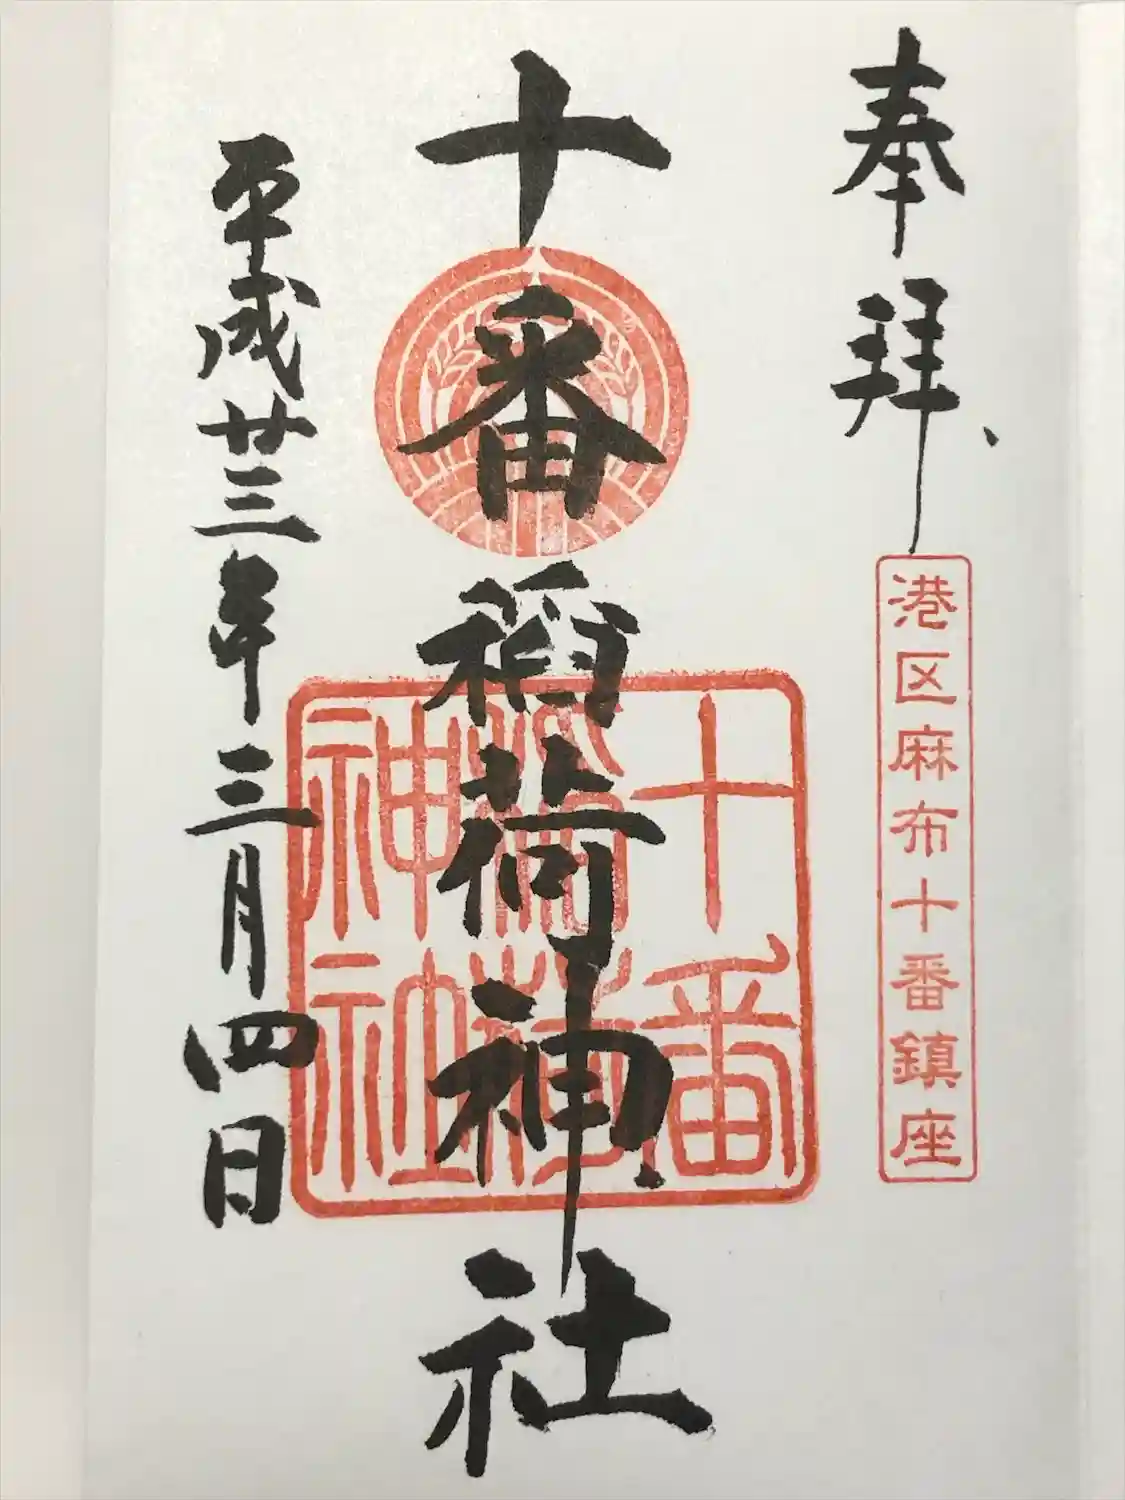 奉拝
港区麻布十番鎮座
十番稲荷神社
十番
稲荷
神社
平成廿三年三月四日